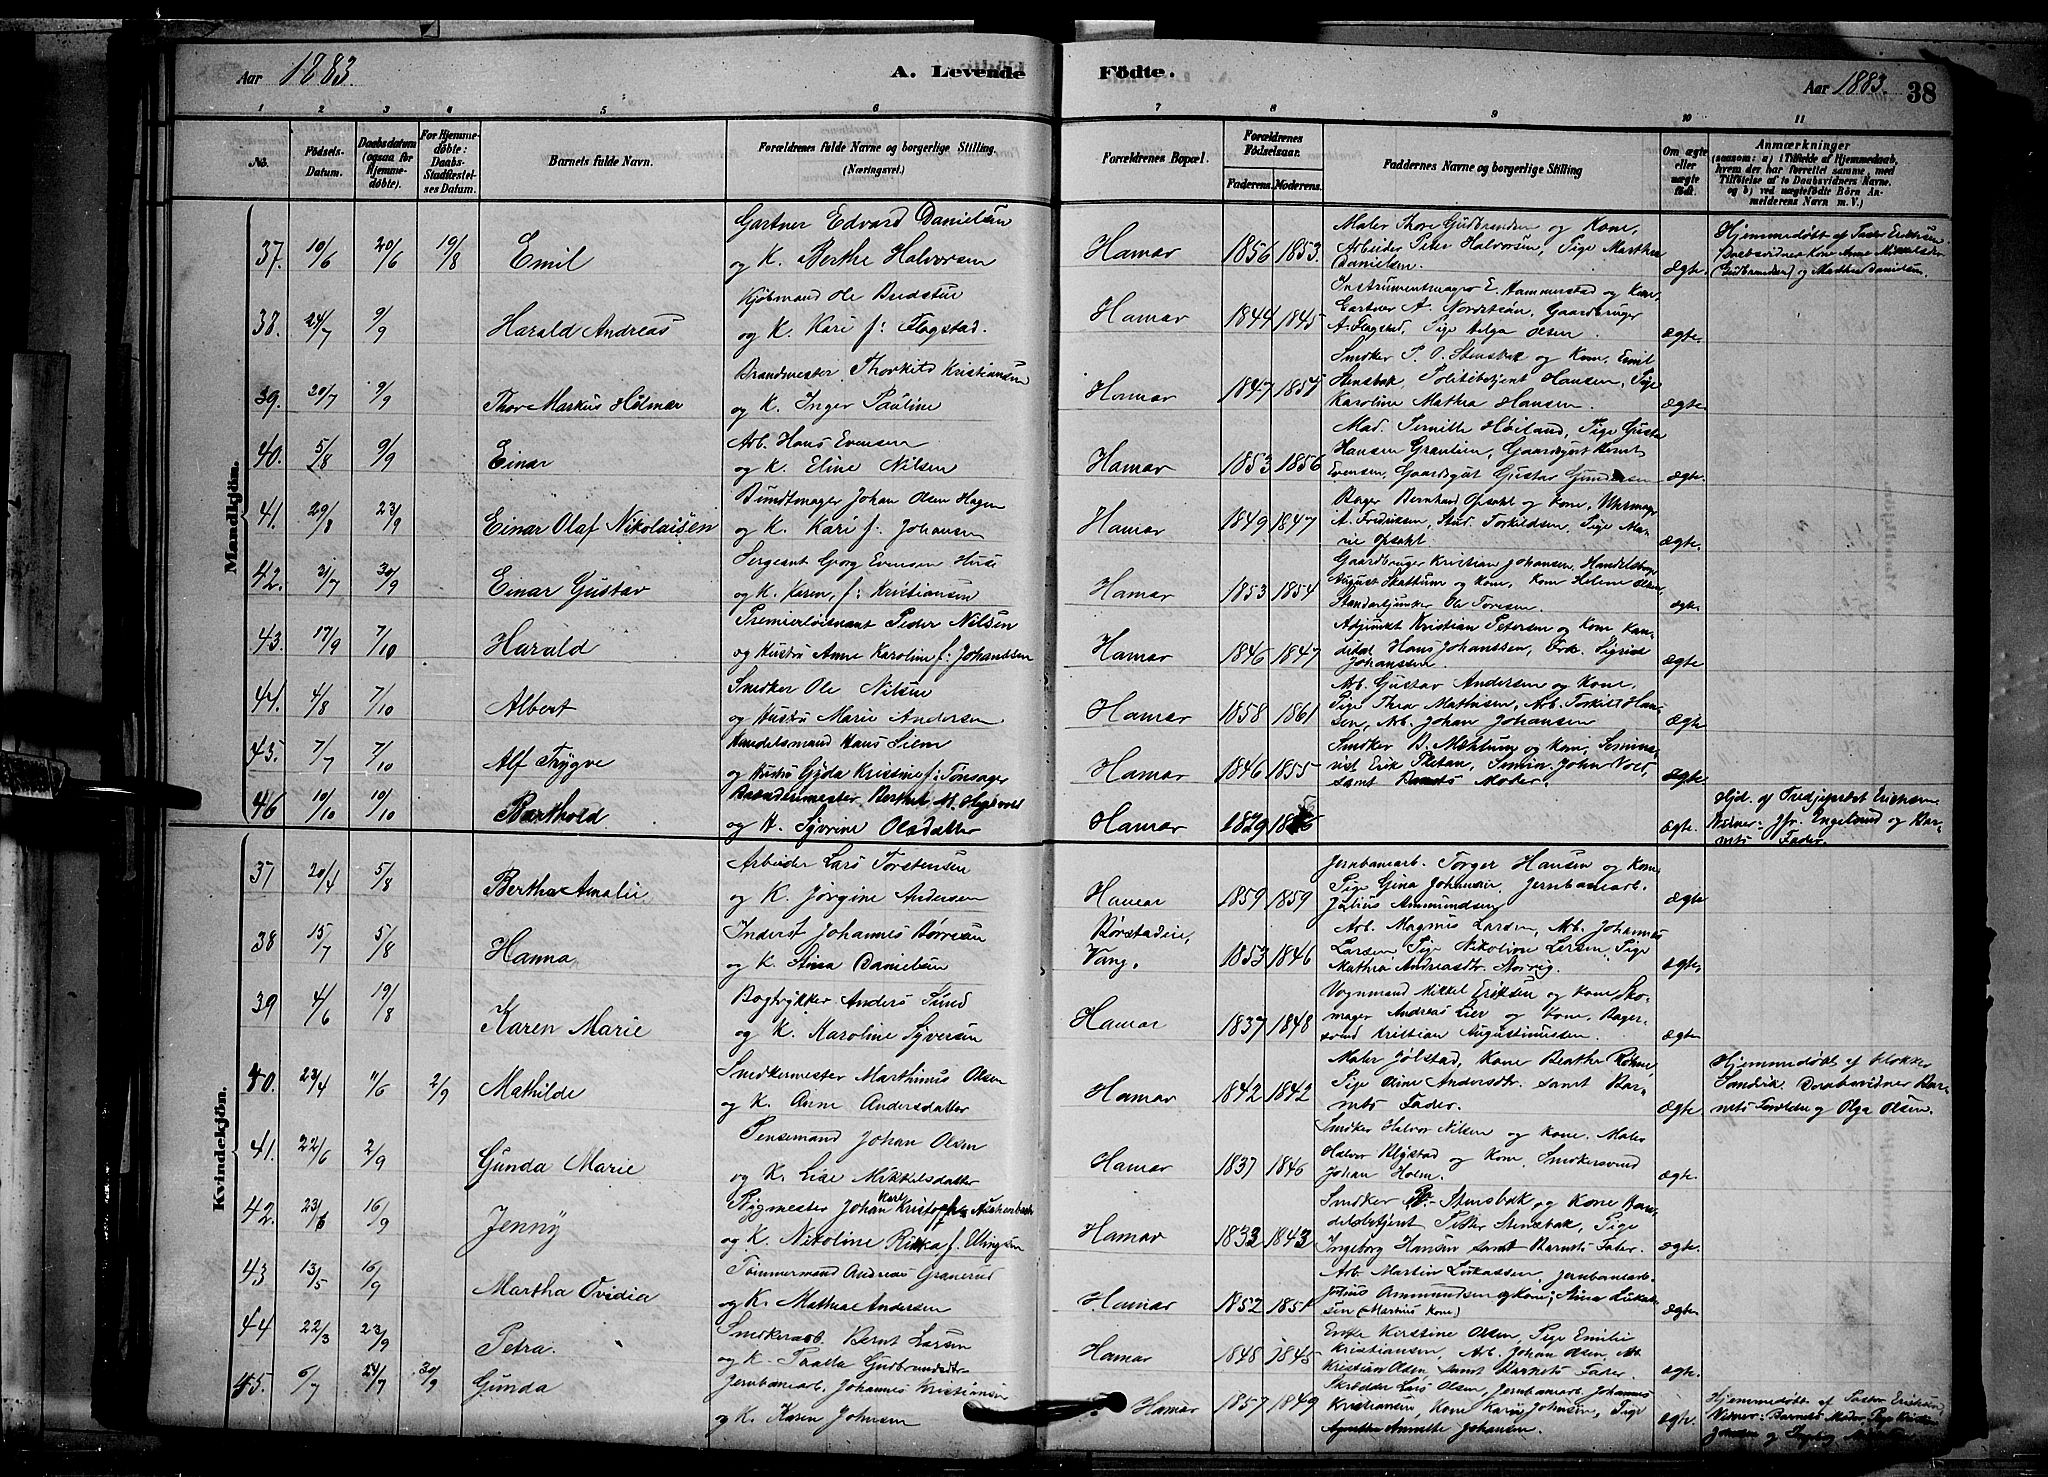 Aar 1883.
A. Levende Födte.
Aar 1883.
38
1 2 3 4 5 6 7 8 9 10 11
No.
Födsels-Datum.
Daabsdatum (ogsaa for Hjemmedöbte).
For Hjemmedöbte: Daabs-Stadfæstelses Datum.
Barnets fulde Navn.
Forældrenes fulde Navne og borgerlige Stilling. (Næringsvei.)
Forældrenes Bopæl.
Forældrenes Födselsaar.
Faderens. Moderens.
Faddernes Navne og borgerlige Stilling
Om ægte eller uægte födt.
Anmærkninger
(saasom: a) i Tilfælde af Hjemmedaab, hvem der har forrettet samme, med Tilföielse af to Daabsvidners Navne, og b) ved uægtefödte Börn Anmelderens Navn m. V.)
Mandkjön.
37. 10/6 20/6 19/8 Emil
Gartner Edvard Danielsen
og K. Berthe Halvorsen
Hamar 1856 1853.
Maler Thore Gudbrandsen og Kone,
Arbeider Peter Halvorsen, Pige Marthea
Danielsen.
ægte.
Hjemmedøbt af Pastor Erichsen.
38. 24/7 9/9 Harald Andreas
Kjöbmand Ole Bredstue
og K. Kari f: Flagstad.
Hamar 1844 1845
Instrumentmager E. Hammerstad og Kone,
A. Flagstad, Pige Helga Olsen
ægte.
39. 20/7 9/9 Thor Markus Hilmar
Brandmester Thorkild Kristiansen
og K. Inger Pauline
Hamar 1847 1854
Snedker P. O. Stensbak og Kone, Emil
Stensbak, Politibetjent Hansen, Pige
Karoline Mathea Hansen.
ægte
40. 5/8 9/9 Einar
Arb. Hans Evensen
og K. Eline Nilsen
Hamar 1853 1856
Mad. Pernille Høiland, Pige Gusta
Hansen Granlien, Gaardsgut Bernt
Evensen, Gaardsgut Gustav Gundersen
ægte.
41. 29/8 23/9 Einar Olaf Nikolaisen
Bundtmager Johan Olsen Hagen
og K. Kari f. Johansen
Hamar 1849 1847
Bager Bernhard Opsahl og Kone, Uhrmager
A. Fredriksen, Stud. Torkildsen, Pige Marie Opsahl
ægte.
42. 31/7 30/9 Einar Gustav
Sergeant Georg Evensen Huse
og K. Karen, f: Kristiansen
Hamar 1853 1854
Gaardbruger Kristian Johansen, Handelsbog.
August Skattum og Kone, Kone Helene Olsen,
Standartjunker Ole Toresen.
ægte
43. 17/9 7/10 Harald
Premierløitnant Peder Nilsen
og Hustru Anne Karoline f: Johanssen
Hamar 1846 1847
Adjunkt Kristian Petersen og Kone, Kandidat Hans Johanssen, Frk. Sigrid
Johanssen.
ægte
44. 4/8 7/10 Albert
Snedker Ole Nilsen
og Hustru Marie Andersen
Hamar 1858 1861
Arb. Gustav Andersen og Kone.
Pige Thea Mathisen, Arb. Torkild Hansen, Arb. Johan Johansen
ægte
45. 7/7 7/10 Alf Trygve
Handelsmand Hans Liem
og Hustru Gyda Kristine f: Tonsager
Hamar 1846 1855
Snedker B. Mæhlum og Kone, Seminarist Erik Pletan, Semin. John Vold,
samt Barnets Moder.
ægte
46 10/10 10/10 Barthold
og H. Syverine Olsdatter
Hamar 1829
ægte.
Hjd. af Tredjeprest Erichsen
Vidner: Jfr. Engelund og Barnets Fader.
Kvindekjön.
37 20/4 5/8 Bertha Amalie
Arbeider Lars Torstensen
og K. Jørgine Andersen
Hamar 1859 1859
Jernbanearb. Torger Hansen og Kone
Pige Gina Johansen, Jernbanearb.
Julius Ammundsen
ægte
38 15/7 5/8 Hanna
Inderst Johannes Børresen
og K. Stina Danielsen
Børstadeie, Vang. 1853 1846
Arb. Magnus Larsen, Arb. Johannes
Larsen, Pige Nikoline Larsen, Pige
Mathea Andreasdtr.
ægte
39 4/6 19/8 Karen Marie
Bogtrykker Anders Sund
og K. Karoline Syversen
Hamar 1837 1848
Vognmand Mikkel Eriksen og Kone, Skomager Andreas Lier og Kone, Bagersvend Kristian Augustinussen.
ægte
40. 23/4 11/6 2/9 Mathilde
Snedkermester Marthinus Olsen
og K. Anne Andersdatter
Hamar 1842 1842
Maler Jølstad, Kone Beathe Røhne,
Pige Oline Andersdtr. samt Barnets Fader.
ægte
Hjemmedøbt af Klokker
Sandvik. Daabsvidner Barnets Forældre og Olga Olsen.
41. 22/6 2/9 Gunda Marie
Pensemand Johan Olsen
og K. Lise Mikkelsdatter
Hamar 1837 1846
Snedker Halvor Nilsen og Kone. Maler
Halvor Bligstad og Kone, Snedkersvend
Johan Holm.
ægte.
42. 23/6 16/9 Jenny
Bygmester Johan Karl Kristopher Aschenbach
og K. Nikoline Rikka f. Ellingsen
Hamar 1833 1843
Snedker P. Stensbak og Kone Handelsbetjent Petter Stensbak, Pige
Ingeborg Hansen samt Barnets Fader.
ægte.
43 13/5 16/9 Martha Ovidia
Tømmermand Andreas Granerud
og K. Mathea Andersen
Hamar 1852 1851
Arb. Martin Lukassen, Jernbanearb.
Julius Ammundsen og Kone, Stina Lukassen (Martins Kone)
ægte
44 22/3 23/9 Petra.
Snedkerarb. Bernt Larsen
og K. Gudbrandsdtr
Hamar 1848 1845
Enke Kirstine Olsen, Pige Emilie
Kristiansen, Arb. Johan Olsen, Arb.
Kristian Olsen, samt Barnets Fader.
ægte.
45. 6/7 24/7 30/9 Gunda
Jernbanearb. Johannes Kristiansen
og K. Karen Johnsen
Hamar 1857 1849
Skrædder Lars Olsen, Jernbanearb. Johannes
Kristiansen, Kone Karen Johnsen, Pige
Annette Johansen.
ægte.
Hjemmedøbt af Pastor Erichsen
Vidner: Barnets Moder, Pige